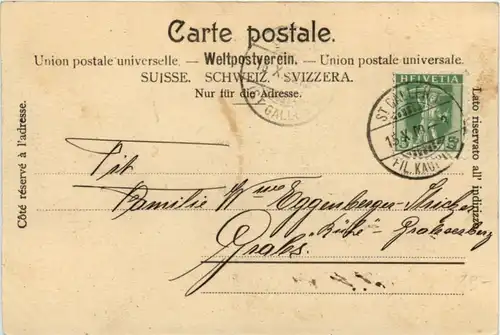 Carte postale.
Union postale universelle. — Weltpostverein. — Union postale universale.
SUISSE. SCHWEIZ. SVIZZERA.
Nur für die Adresse.
Côté réservé à l'adresse.
Lato riservato all' indirizzo.
HELVETIA
5
ST. GALLEN
FIL. KAUF
GALL
Tit
Familie Wwe Eggenberger-
"Bühl" - Grabserberg
Grabs.